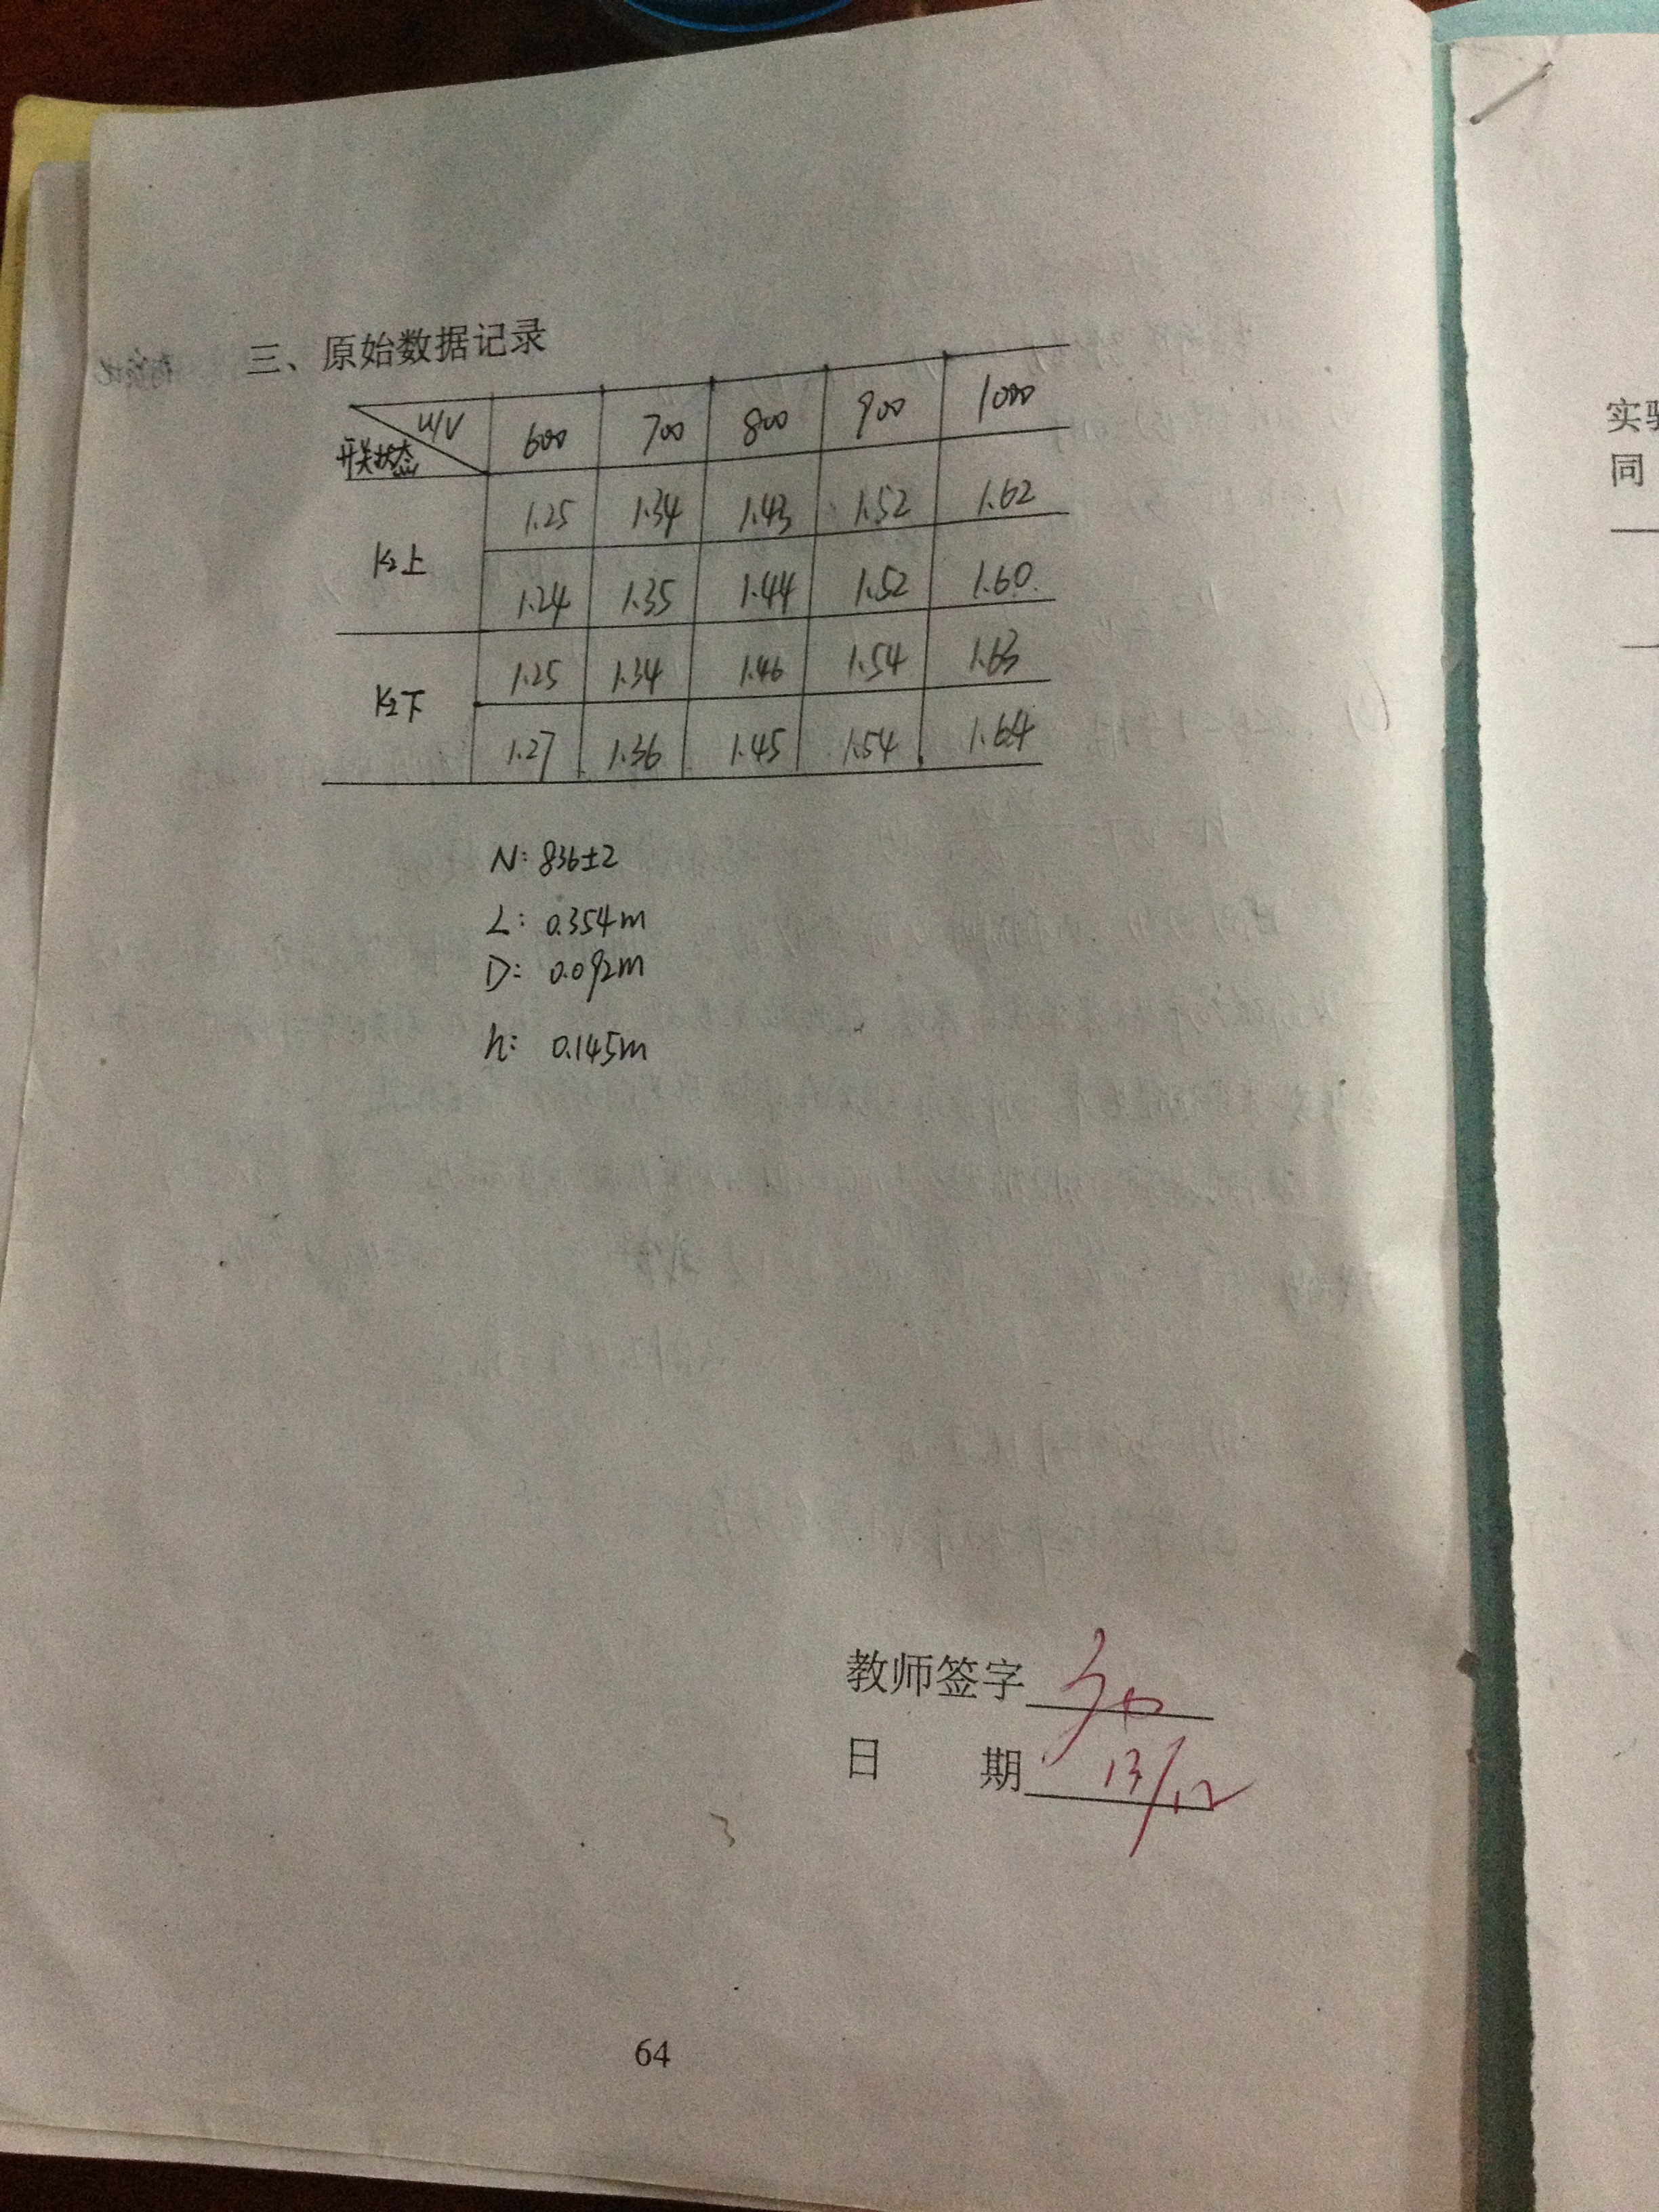 三、原始数据记录
U/V 600 700 800 900 1000
开关状态
K₂上 1.25 1.34 1.43 1.52 1.62
1.24 1.35 1.44 1.52 1.60
K₂下 1.25 1.34 1.46 1.54 1.63
1.27 1.36 1.45 1.54 1.64
N: 836±2
L: 0.354m
D: 0.092m
h: 0.145m
教师签字
日 期 13/12
64
实验
同